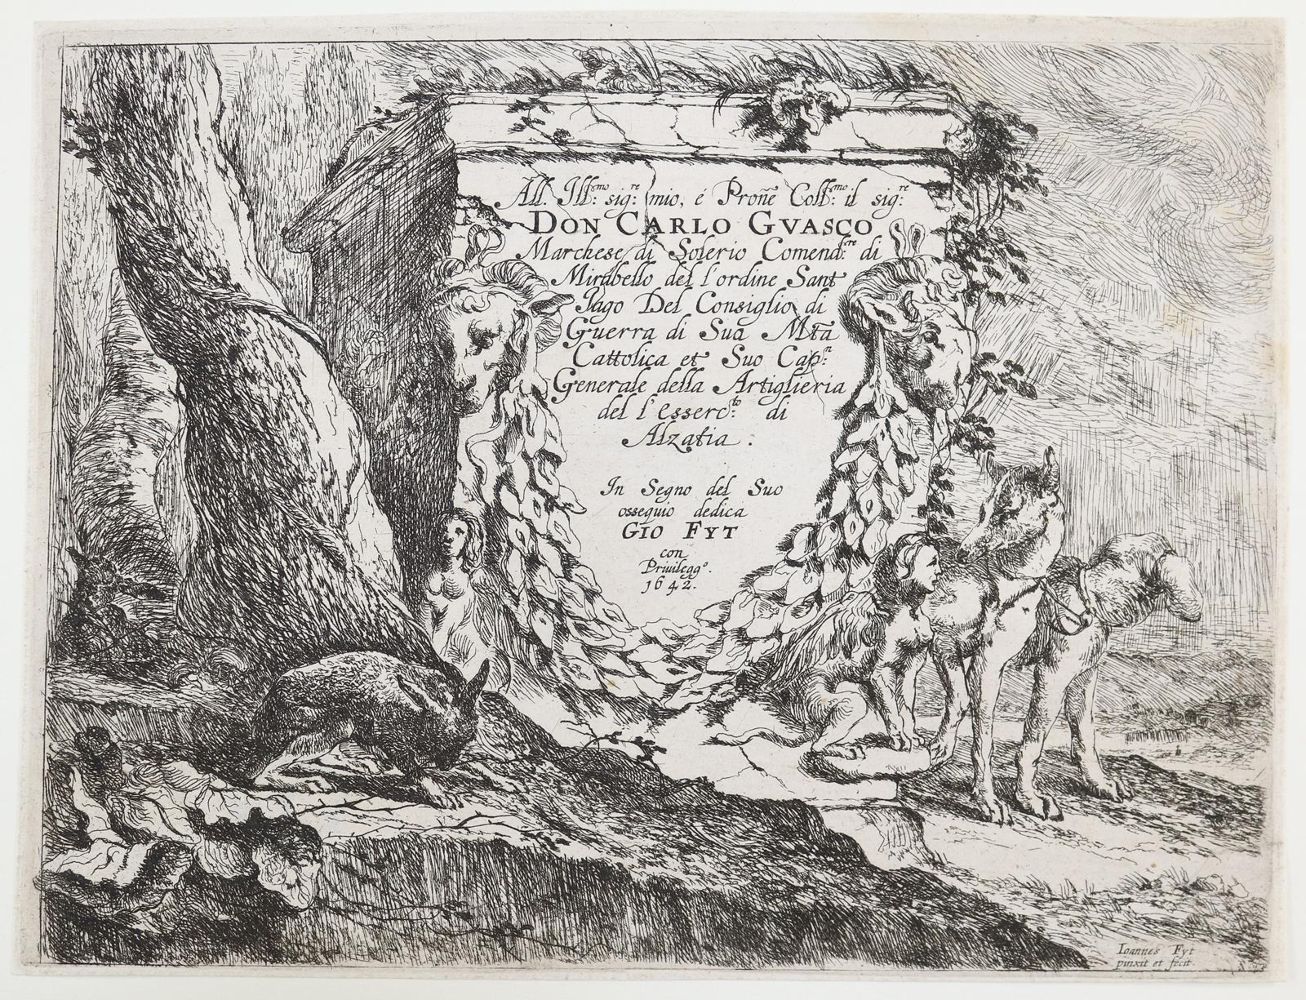 All. Ill:mo sig:re mio, é Proñe Coll:mo il sig:re
DON CARLO GVASCO
Marchese di Solerio Comend:re di
Mirabello del l'ordine Sant
Jago Del Consiglio di
Guerra di Sua Mtà
Cattolica et Suo Cap:n
Generale della Artiglieria
del l'Esserc:to di
Alzatia.
In Segno del Suo
ossequio dedica
GIO FYT
con
Priuilegg°.
1642.
Ioannes Fyt
pinxit et fecit.